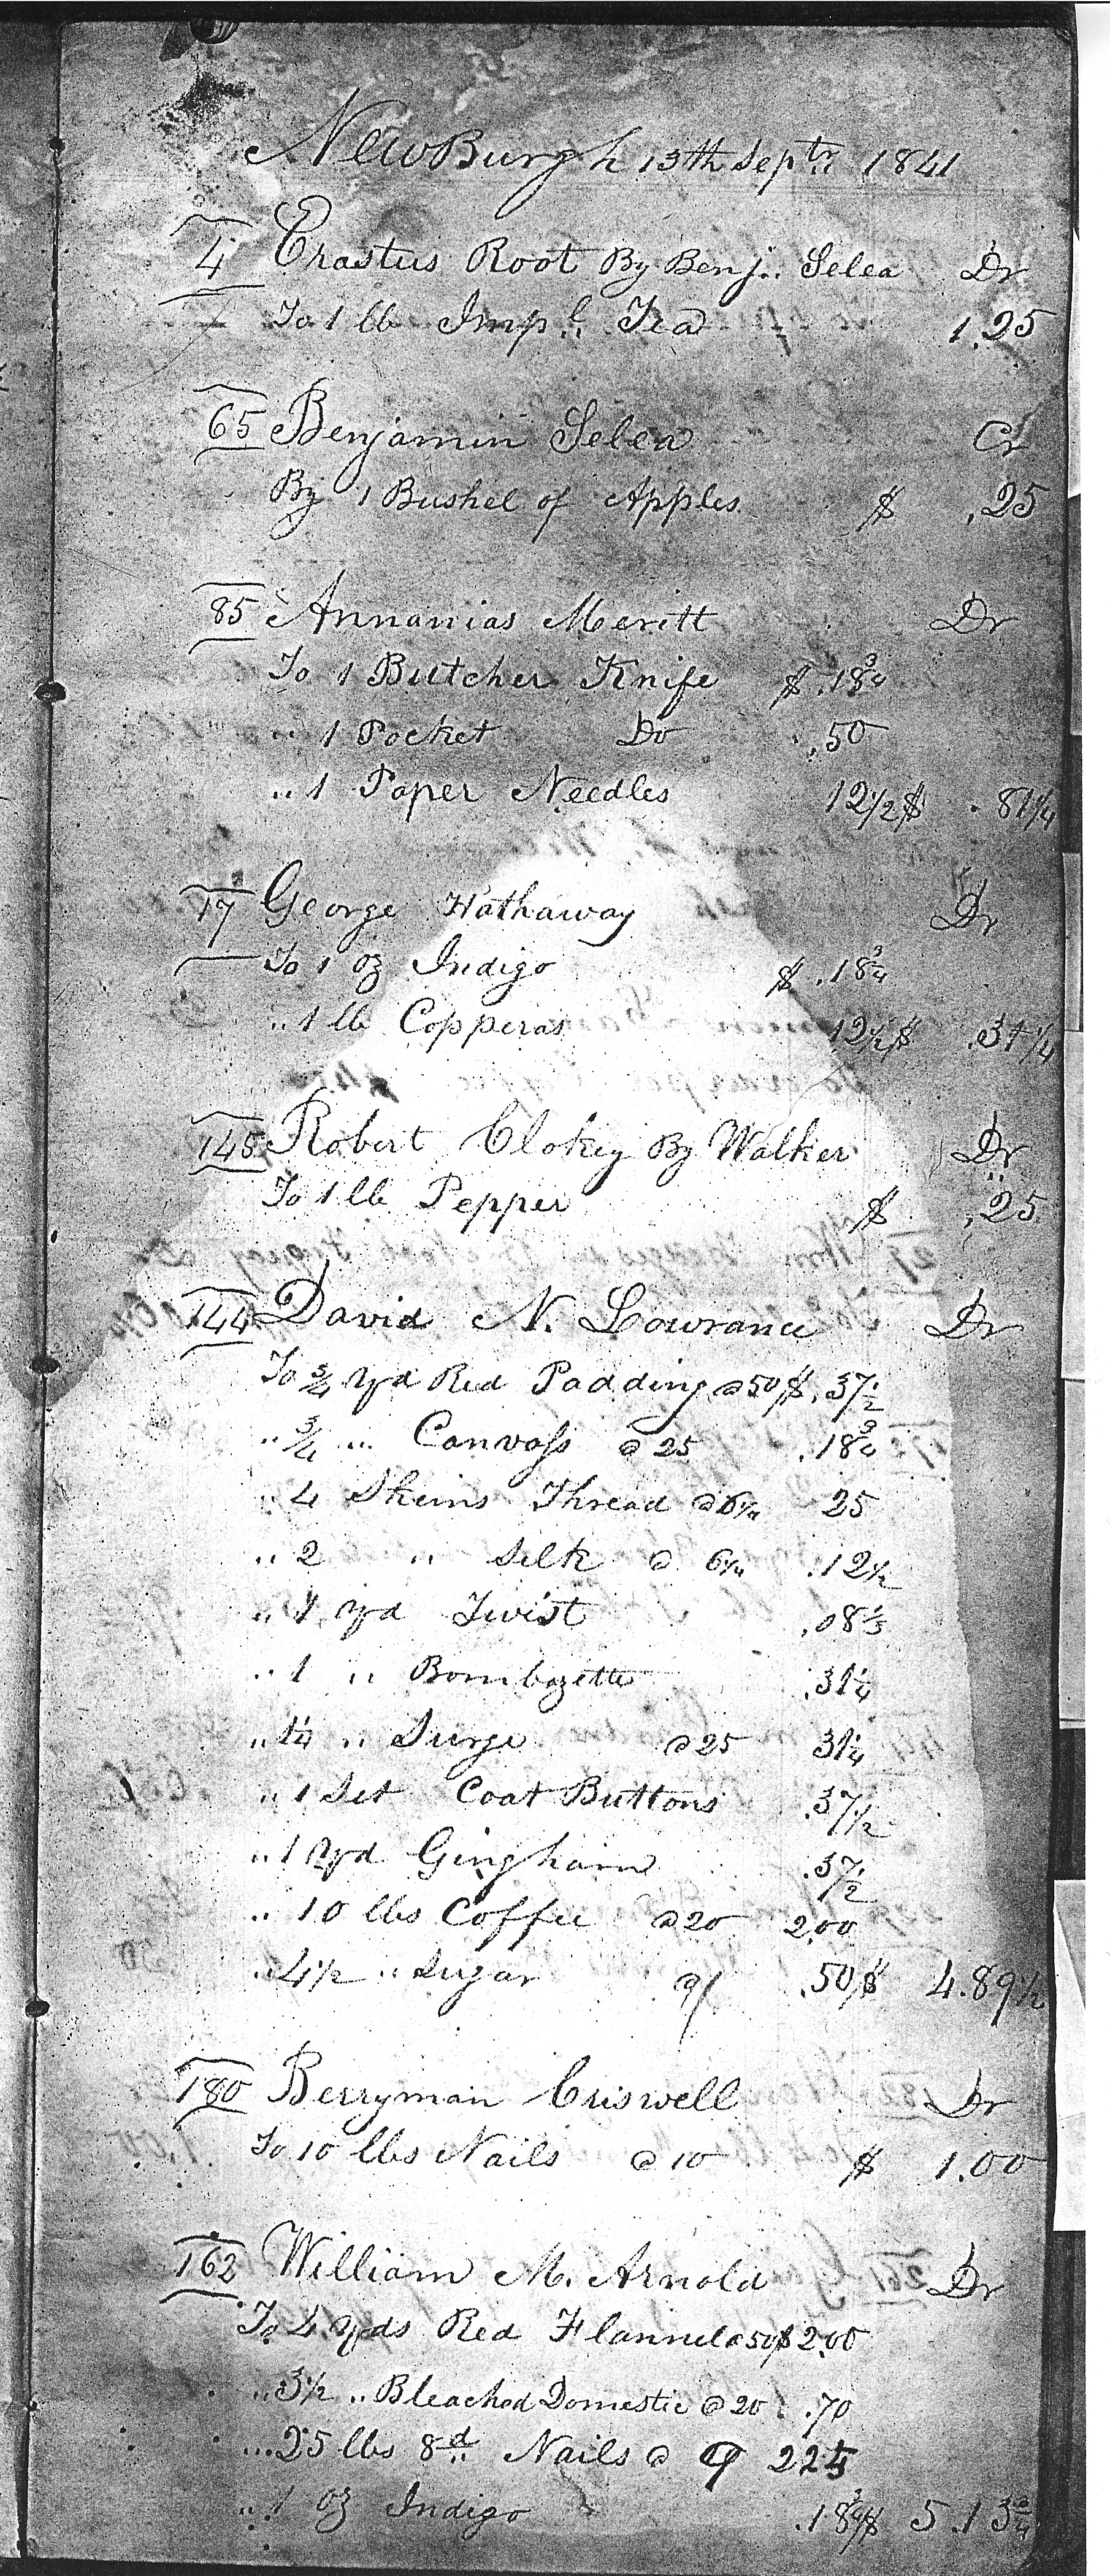 NewBurgh 13th Septr 1841
4 Erastus Root By Benj. Selea Dr
To 1 lb Impl Tea 1.25
65 Benjamin Selea Cr
By 1 Bushel of Apples $ .25
85 Annanias Meritt Dr
To 1 Butcher Knife $ .18 3/4
" 1 Pocket Do .50
" 1 Paper Needles 12 1/2 $ .81 1/4
17 George Hathaway Dr
To 1 oz Indigo $ .18 3/4
" 1 lb Copperas 12 1/2 $ .31 1/4
145 Robert Clokey By Walker Dr
To 1 lb Pepper $ .25
144 David N. Lowrance Dr
To 3/4 yd Red Padding @ 50 $ .37 1/2
" 3/4 " Canvass @ 25 .18 3/4
" 4 Skeins Thread @ 6 1/4 25
" 2 " Silk @ 6 1/4 .12 1/2
" 1 yd Twist .08 1/3
" 1 " Bombazette .31 1/4
" 1 1/4 " Surge @ 25 31 1/4
" 1 Set Coat Buttons .37 1/2
" 1 yd Gingham .37 1/2
" 10 lbs Coffee @ 20 2.00
" 4 1/2 " Sugar @/ .50 $ 4.89 1/2
180 Berryman Criswell Dr
To 10 lbs Nails @ 10 $ 1.00
162 William M. Arnold Dr
To 4 yds Red Flannel @ 50 $ 2.00
" 3 1/2 " Bleached Domestic @ 20 .70
" 25 lbs 8d Nails @ 9 225
" 1 oz Indigo .18 3/4 $ 5.13 3/4